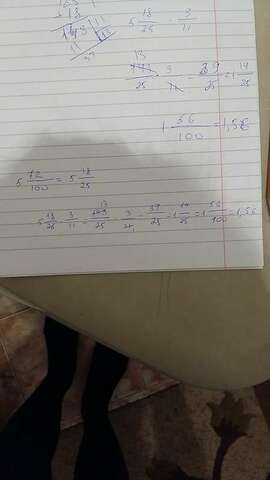 5 18/25 · 3/11
13
143/25 · 3/11 = 39/25 = 1 14/25
1 56/100 = 1,56
5 72/100 = 5 18/25
5 18/25 · 3/11 = 143/25 · 3/11 = 39/25 = 1 14/25 = 1 56/100 = 1,56